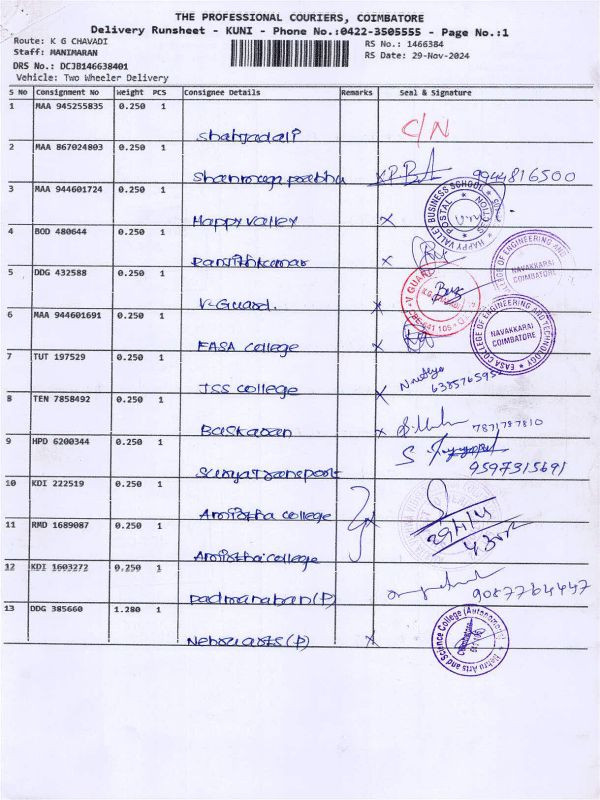 THE PROFESSIONAL COURIERS, COIMBATORE
Delivery Runsheet - KUNI - Phone No.:0422-3505555 - Page No.:1
Route: K G CHAVADI
RS No.: 1466384
Staff: MANIMARAN
RS Date: 29-Nov-2024
DRS No.: DCJB146638401
Vehicle: Two Wheeler Delivery
S No Consignment No Weight PCS Consignee Details Remarks Seal & Signature
1 MAA 945255835 0.250 1
Shahjadali C/N
2 MAA 867024803 0.250 1
Shanmuga prabhu x 9944816500
3 MAA 944601724 0.250 1
Happy valley x HAPPY VALLEY BUSINESS SCHOOL POSTAL SECTION
4 BOD 480644 0.250 1
Ranjithkumar x
5 DDG 432588 0.250 1
V-Guard. x V GUARD K.G. CHAVADI CBE-641 105
EASA COLLEGE OF ENGINEERING AND NAVAKKARAI COIMBATORE
6 MAA 944601691 0.250 1
EASA college x EASA COLLEGE OF ENGINEERING AND TECHNOLOGY NAVAKKARAI COIMBATORE
7 TUT 197529 0.250 1
JSS college x
8 TEN 7858492 0.250 1
Baskaran x 7871787810
9 HPD 6200344 0.250 1
Surya Transport S 9597315691
10 KDI 222519 0.250 1
college x
11 RMD 1689087 0.250 1
college
12 KDI 1603272 0.250 1
padmanaban (P) 9087764447
13 DDG 385660 1.280 1
Nehru arts (P) x Nehru Arts and Science College (Autonomous) Coimbatore